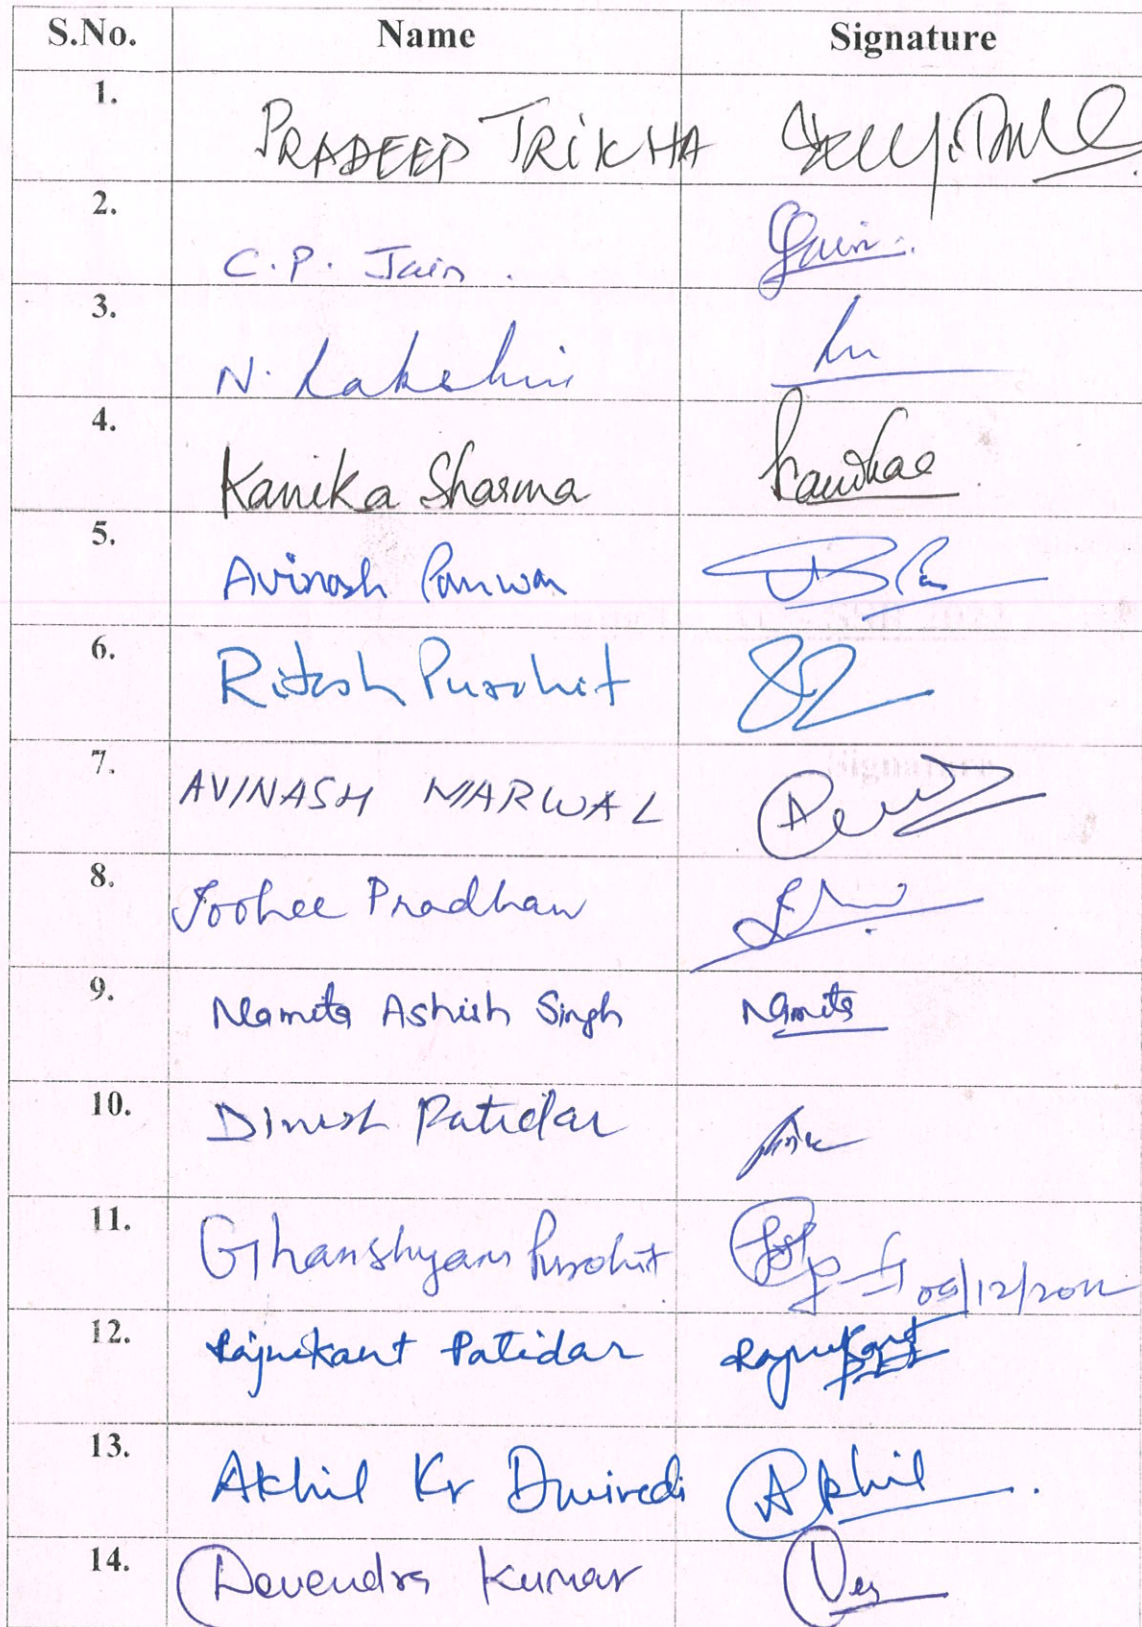 S.No. Name Signature
1. PRADEEP TRIKHA
2. C.P. Jain. Jain
3. N. Lakshmi
4. Kanika Sharma
5. Avinash Panwar
6. Ritesh Purohit
7. AVINASH MARWAL
8. Joohee Pradhan
9. Namita Ashish Singh Namita
10. Dinesh Patidar
11. Ghanshyam Purohit
12. Rajnikant Patidar Rajnikant
13. Akhil Kr Dwivedi Akhil
14. Devendra Kumar